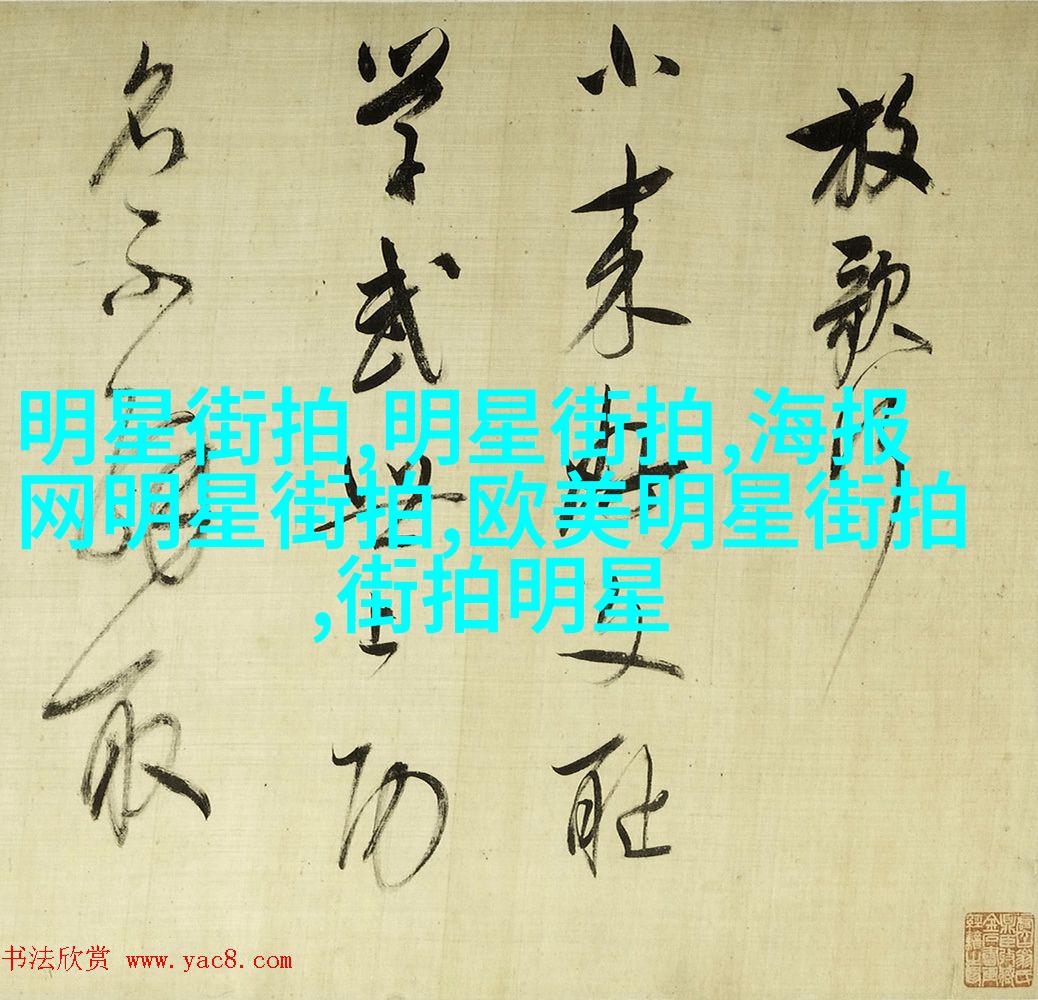 放歌行
小来好文耻
学武世上功
名不解取
明星街拍,明星街拍,海报
网明星街拍,欧美明星街拍
,街拍明星
书法欣赏 www.yac8.com